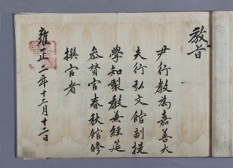 教旨
尹行教為嘉善大
夫行弘文館副提
學知製教兼經筵
參贊官春秋館修
撰官者
雍正二年十二月十二日